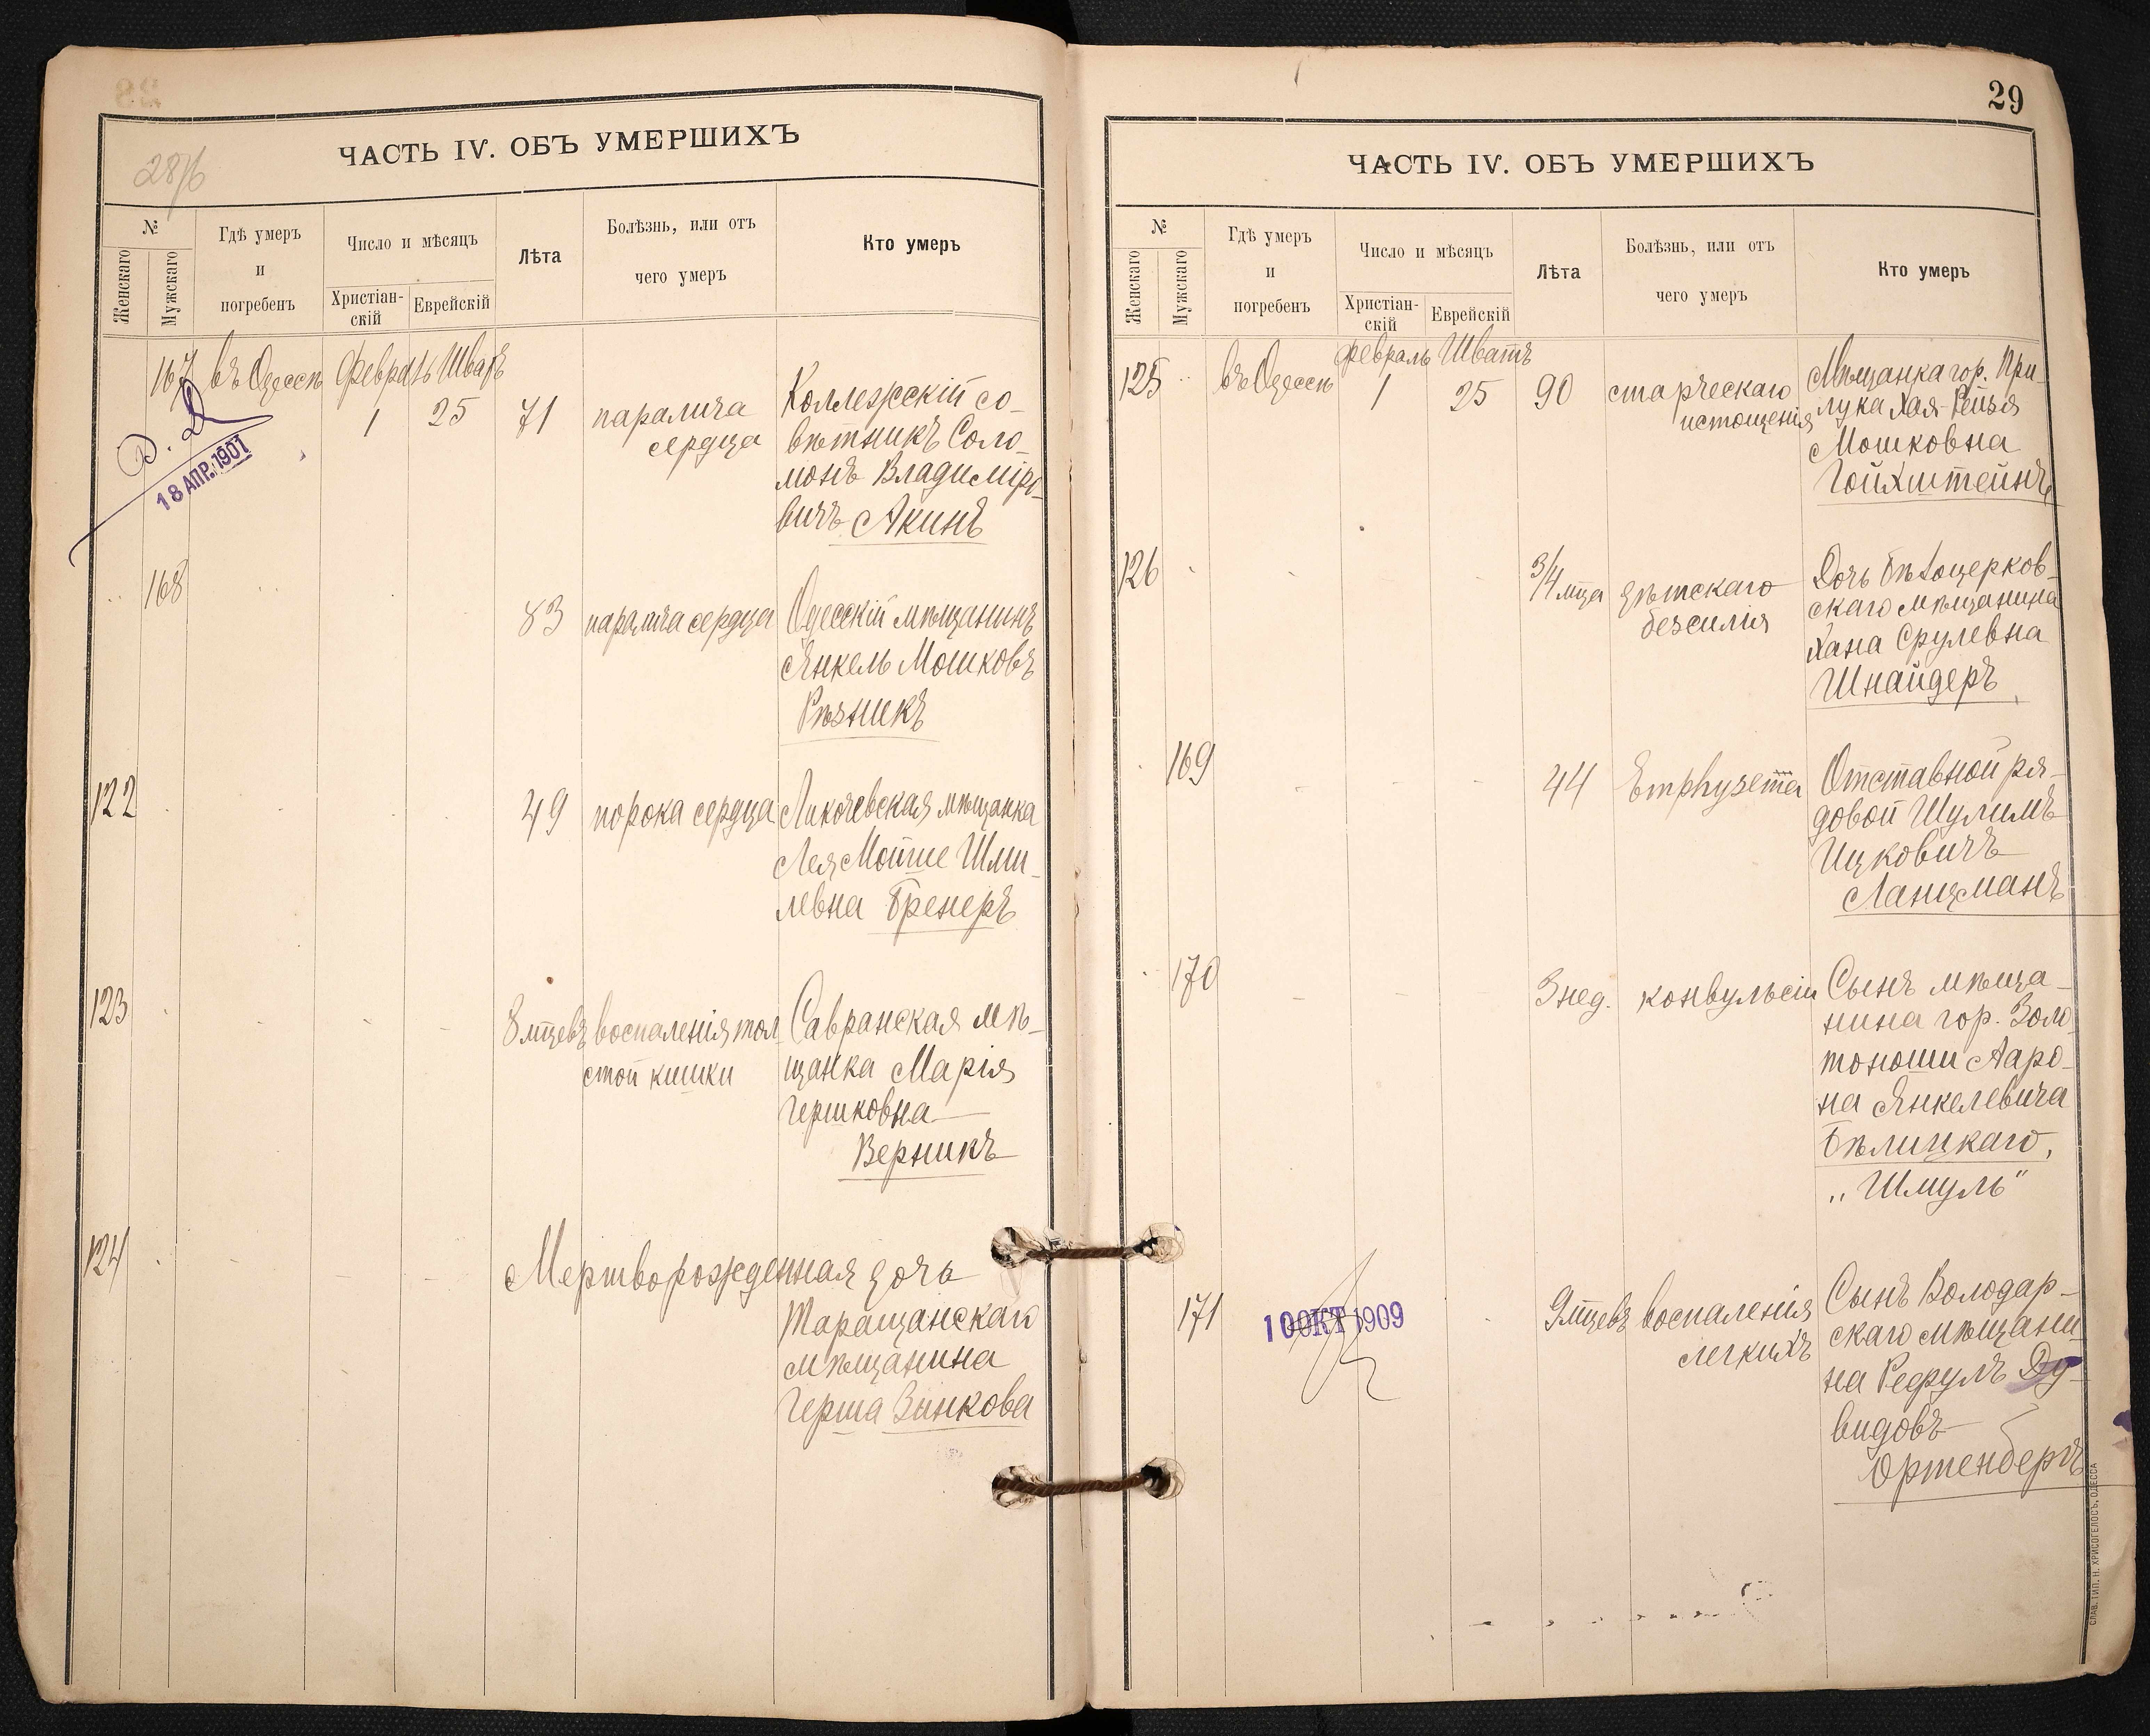 28/б
ЧАСТЬ IV. ОБЪ УМЕРШИХЪ
№
Женскаго
Мужскаго
Гдѣ умеръ
и
погребенъ
Число и мѣсяцъ
Христіан-
скій
Еврейскій
Лѣта
Болѣзнь, или отъ
чего умеръ
Кто умеръ
167 въ Одессѣ Февраль Шватъ
1 25 71
паралича
сердца
Коллежскій со-
вѣтникъ Соло-
монъ Владиміро-
вичъ Акинъ
18 АПР. 1907
168
83 паралича сердца
Одесскій мѣщанинъ
Янкель Мошковъ
Рѣзникъ
122
49 порока сердца
мѣщанка
Лея Мотше Шми-
левна Бренеръ
123
8 мцевъ воспаленія тол-
стой кишки
Савранская мѣ-
щанка Марія
Гершковна
Верникъ
124
Мертворожденная дочь
Таращанскаго
мѣщанина
Герша Зинкова
29
ЧАСТЬ IV. ОБЪ УМЕРШИХЪ
№
Женскаго
Мужскаго
Гдѣ умеръ
и
погребенъ
Число и мѣсяцъ
Христіан-
скій
Еврейскій
Лѣта
Болѣзнь, или отъ
чего умеръ
Кто умеръ
125 въ Одессѣ Февраль Шватъ
1 25 90
старческаго
истощенія
Мѣщанка гор. При-
лука Хая-Рейзя
Мошковна
Гойхштейнъ
126
3/4 мца дѣтскаго
безсилія
Дочь бѣлоцерков-
скаго мѣщанина
Хана Срулевна
Шнайдеръ
169
44 Emphysema
Отставной ря-
довой Шулимъ
Ицковичъ
Ланцманъ
170
3 нед. конвульсіи
Сынъ мѣща-
нина гор. Золо-
тоноши Ааро-
на Янкелевича
Бѣлицкаго,
„Шмуль"
171
10 ОКТ 1909
9 мцевъ воспаленія
легкихъ
Сынъ Володар-
скаго мѣщани-
на Рефулъ Ду-
видовъ
Ортенбергъ
СЛАВ. ТИП. Н. ХРИСОГЕЛОСЪ, ОДЕССА